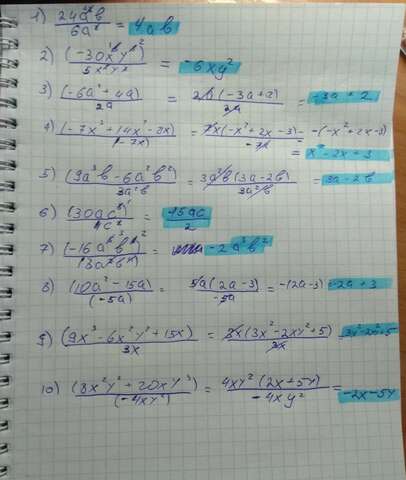 1) 24a²b / 6a = 4ab
2) (-30x⁴y²) / 5x²y² = -6xy²
3) (-6a² + 4a) / 2a = 2a(-3a+2) / 2a = -3a + 2
4) (-7x³ + 14x² - 2x) / (-7x) = 7x(-x²+2x-3) / -7x = -(-x²+2x-3)
= x² - 2x + 3
5) (9a³b - 6a²b²) / 3a²b = 3a²b(3a-2b) / 3a²b = 3a - 2b
6) (30ac²) / 4c = 15ac / 2
7) = -2a³b²
8) (10a² - 15a) / (-5a) = 5a(2a-3) / -5a = -(2a-3) = -2a + 3
9) (9x³ - 6x²y² + 15x) / 3x = 3x(3x²-2xy²+5) / 3x =
10) (8x²y² + 20xy³) / (-4xy²) = 4xy²(2x+5y) / -4xy² = -2x-5y